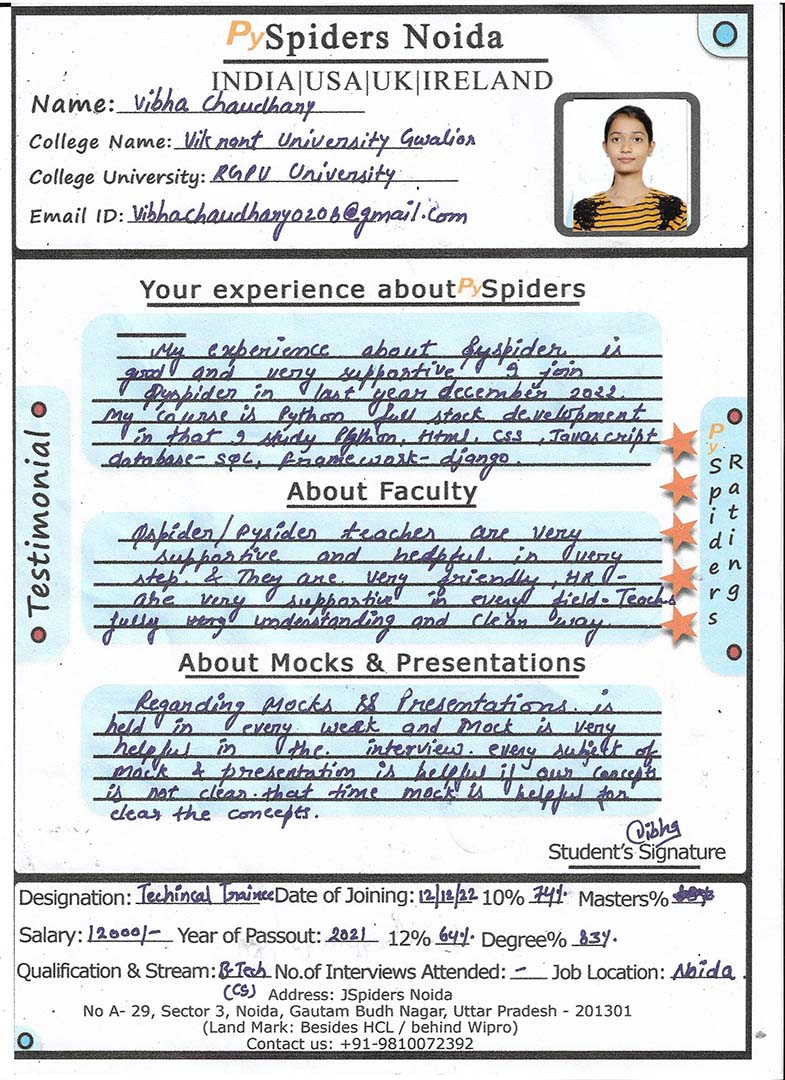 PySpiders Noida
INDIA|USA|UK|IRELAND
Name: Vibha Chaudhary
College Name: Vikrant University Gwalior
College University: RGPV University
Email ID: Vibhachaudhary0206@gmail.com
Your experience about PySpiders
My experience about Qyspider is
good and very supportive I join
Qyspider in last year december 2022.
My course is Python full stack development
in that I study Python, Html, CSS, Javascript
database- SQL, framework- django.
About Faculty
Qspider/Pysider teacher are very
supportive and hedpful in very
step. & They are very friendly, HR-
are very supportive in every field- Teachs
fully very understanding and clean way.
About Mocks & Presentations
Regarding Mocks && Presentations. is
held in every week and Mock is very
helpful in the interview. every subject of
mock & presentation is helpful if our concepts
is not clear. that time mock is helpful for
clear the concepts.
Testimonial
PySpiders
Ratings
Vibha
Student's Signature
Designation: Techincal Trainee Date of Joining: 12/12/22 10% 74% Masters%
Salary: 12000/- Year of Passout: 2021 12% 64% Degree% 83%
Qualification & Stream: B-Tech No.of Interviews Attended: - Job Location: Noida.
(CS) Address: JSpiders Noida
No A- 29, Sector 3, Noida, Gautam Budh Nagar, Uttar Pradesh - 201301
(Land Mark: Besides HCL / behind Wipro)
Contact us: +91-9810072392